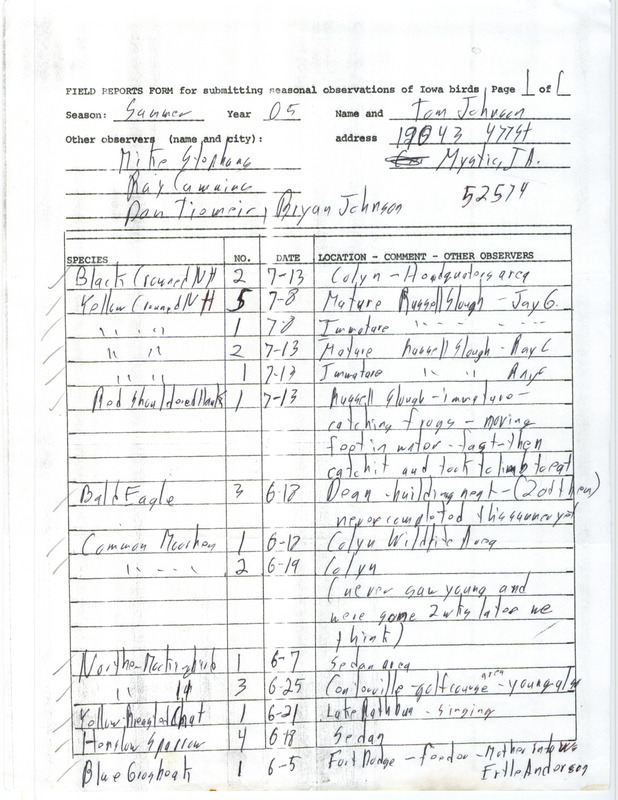 FIELD REPORTS FORM for submitting seasonal observations of Iowa birds Page 1 of 1
Season: Summer Year 05 Name and Tom Johnson
Other observers (name and city): address 19043 477St
Mike Stephens Mystic, IA.
Ray Cummins 52574
Don Tiemeir, Bryan Johnson
SPECIES NO. DATE LOCATION - COMMENT - OTHER OBSERVERS
Black Crowned NH 2 7-13 Colyn - Headquaters area
Yellow Crowned NH 5 7-8 Mature Russell Slough - Jay G.
" " " " 1 7-8 Immature " " - - - - -
" " " " 2 7-13 Mature Russell Slough - Ray C
" " " " 1 7-13 Immature " " "
Red Shouldered Hawk 1 7-13 Russell Slough - immature -
catching frogs - moving
foot in water - fast - then
catch it and took to limb to eat
Bald Eagle 3 6-18 Dean - building nest - (2 of them)
never completed this summer yet
Common Moorhen 1 6-12 Colyn Wildlife Area
" - - " 2 6-19 Colyn
(never saw young and
were some 2 wks later we
think)
Northern Mockingbird 1 6-7 Sedan area
" " " " 3 6-25 Centerville - golf course area - young
Yellow Breasted Chat 1 6-21 Lake Rathbun - Singing
Henslow Sparrow 4 6-18 Sedan
Blue Grosbeak 1 6-5 Fort Dodge - feeder - Mother in law
Anderson